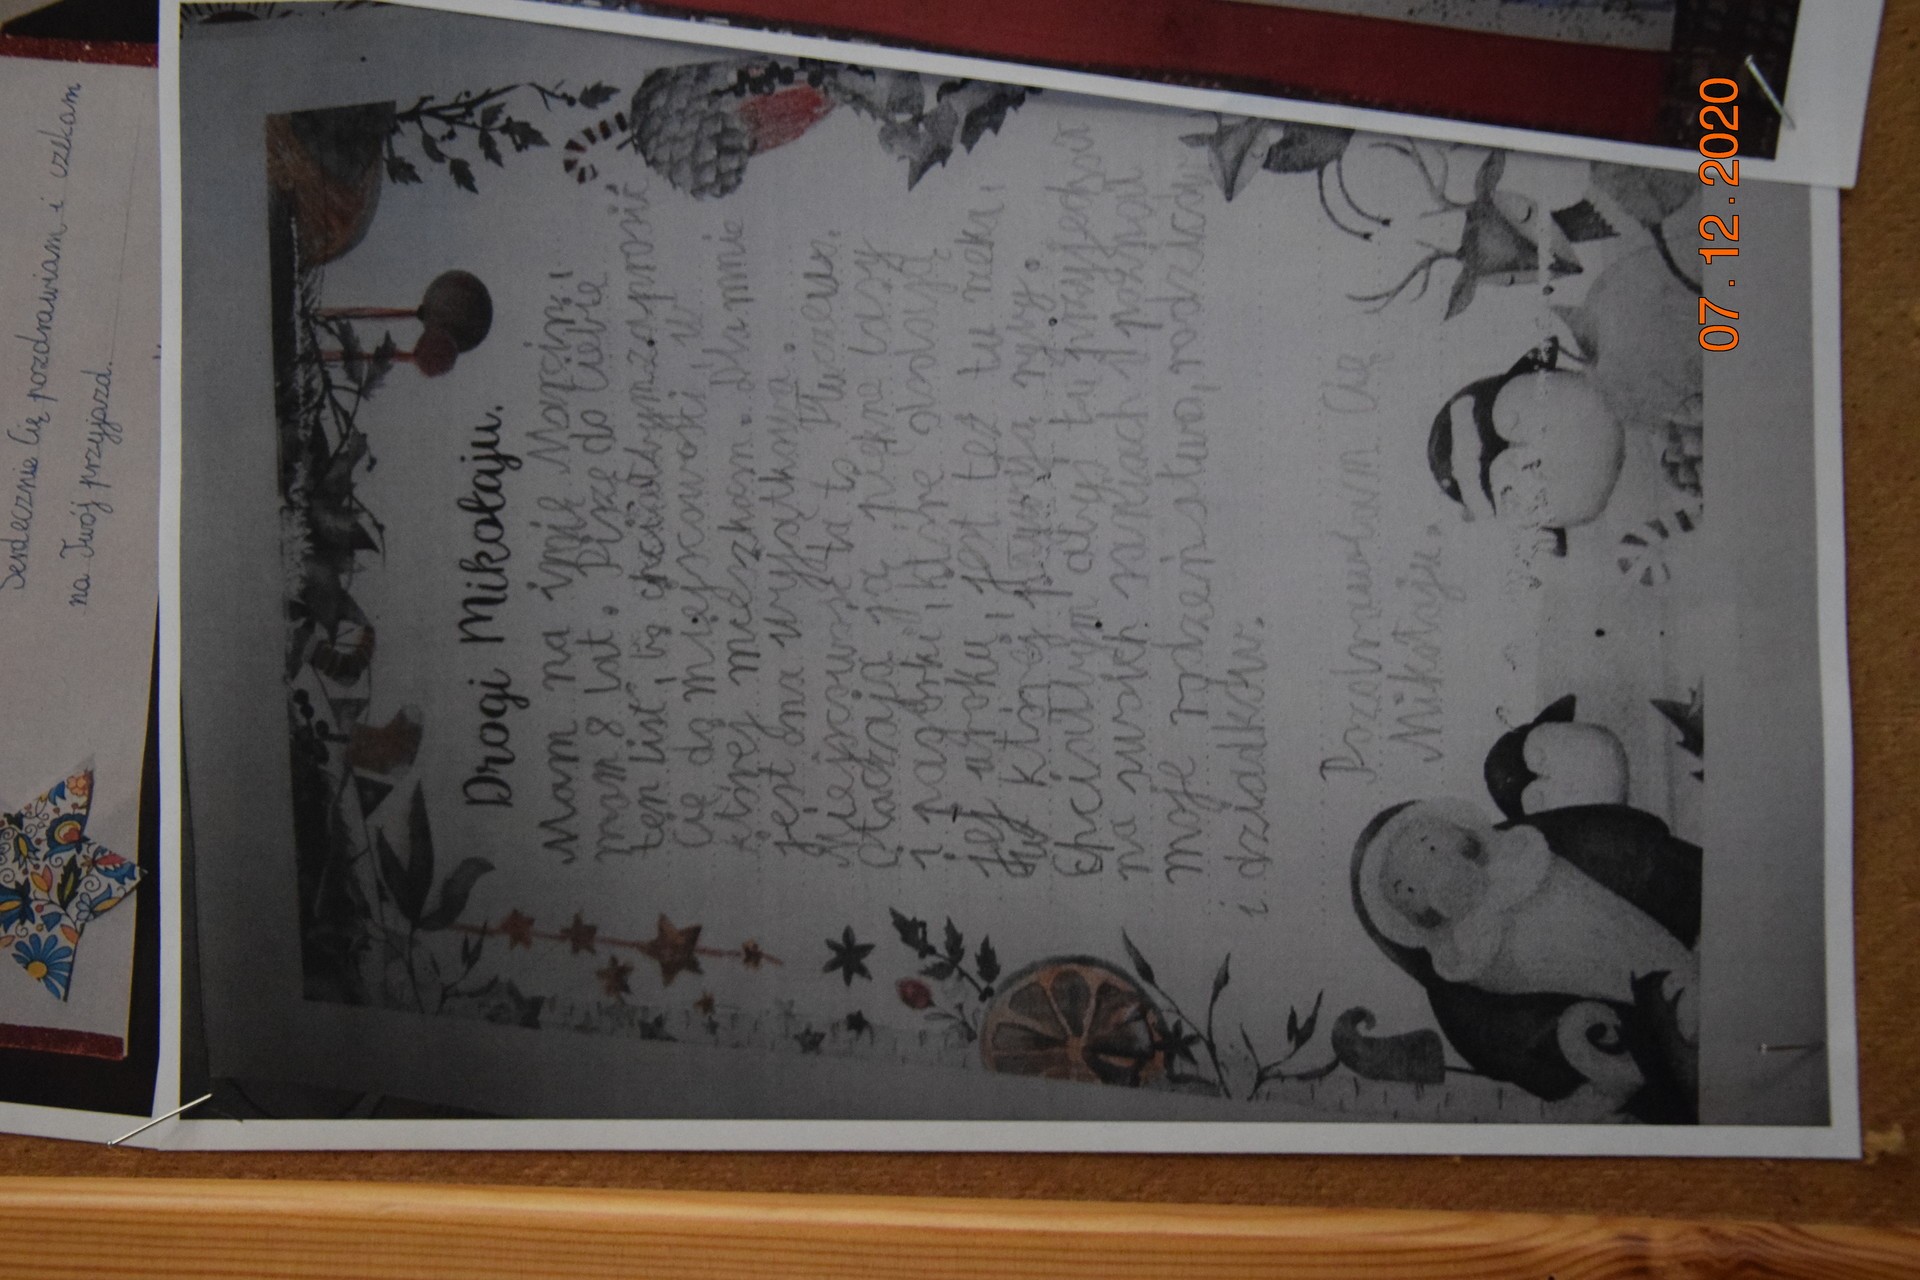 Serdecznie Cię pozdrawiam i czekam
na Twój przyjazd.
Drogi Mikołaju.
Mam na imię Marcin i
mam 8 lat. Piszę do Ciebie
ten list, by chciałbym zaprosić
Cię do miejscowości, w
której mieszkam. Dla mnie
jest ona wyjątkowa.
Miejscowość ta to Tłuczew.
Otaczają ją piękne lasy
i pagórki, które dodają
jej uroku, jest też tu rzeka,
w której pływają ryby.
Chciałbym abyś tu przyjechał
na swoich saniach i poznał
moje rodzeństwo, rodziców
i dziadków.
Pozdrawiam Cię
Mikołaju.
07.12.2020